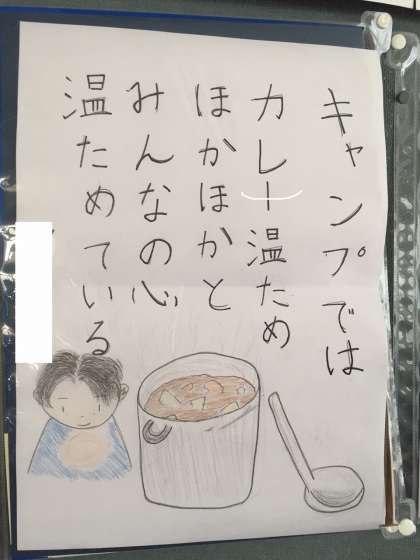 キャンプでは
カレー温ため
ほかほかと
みんなの心
温ためている